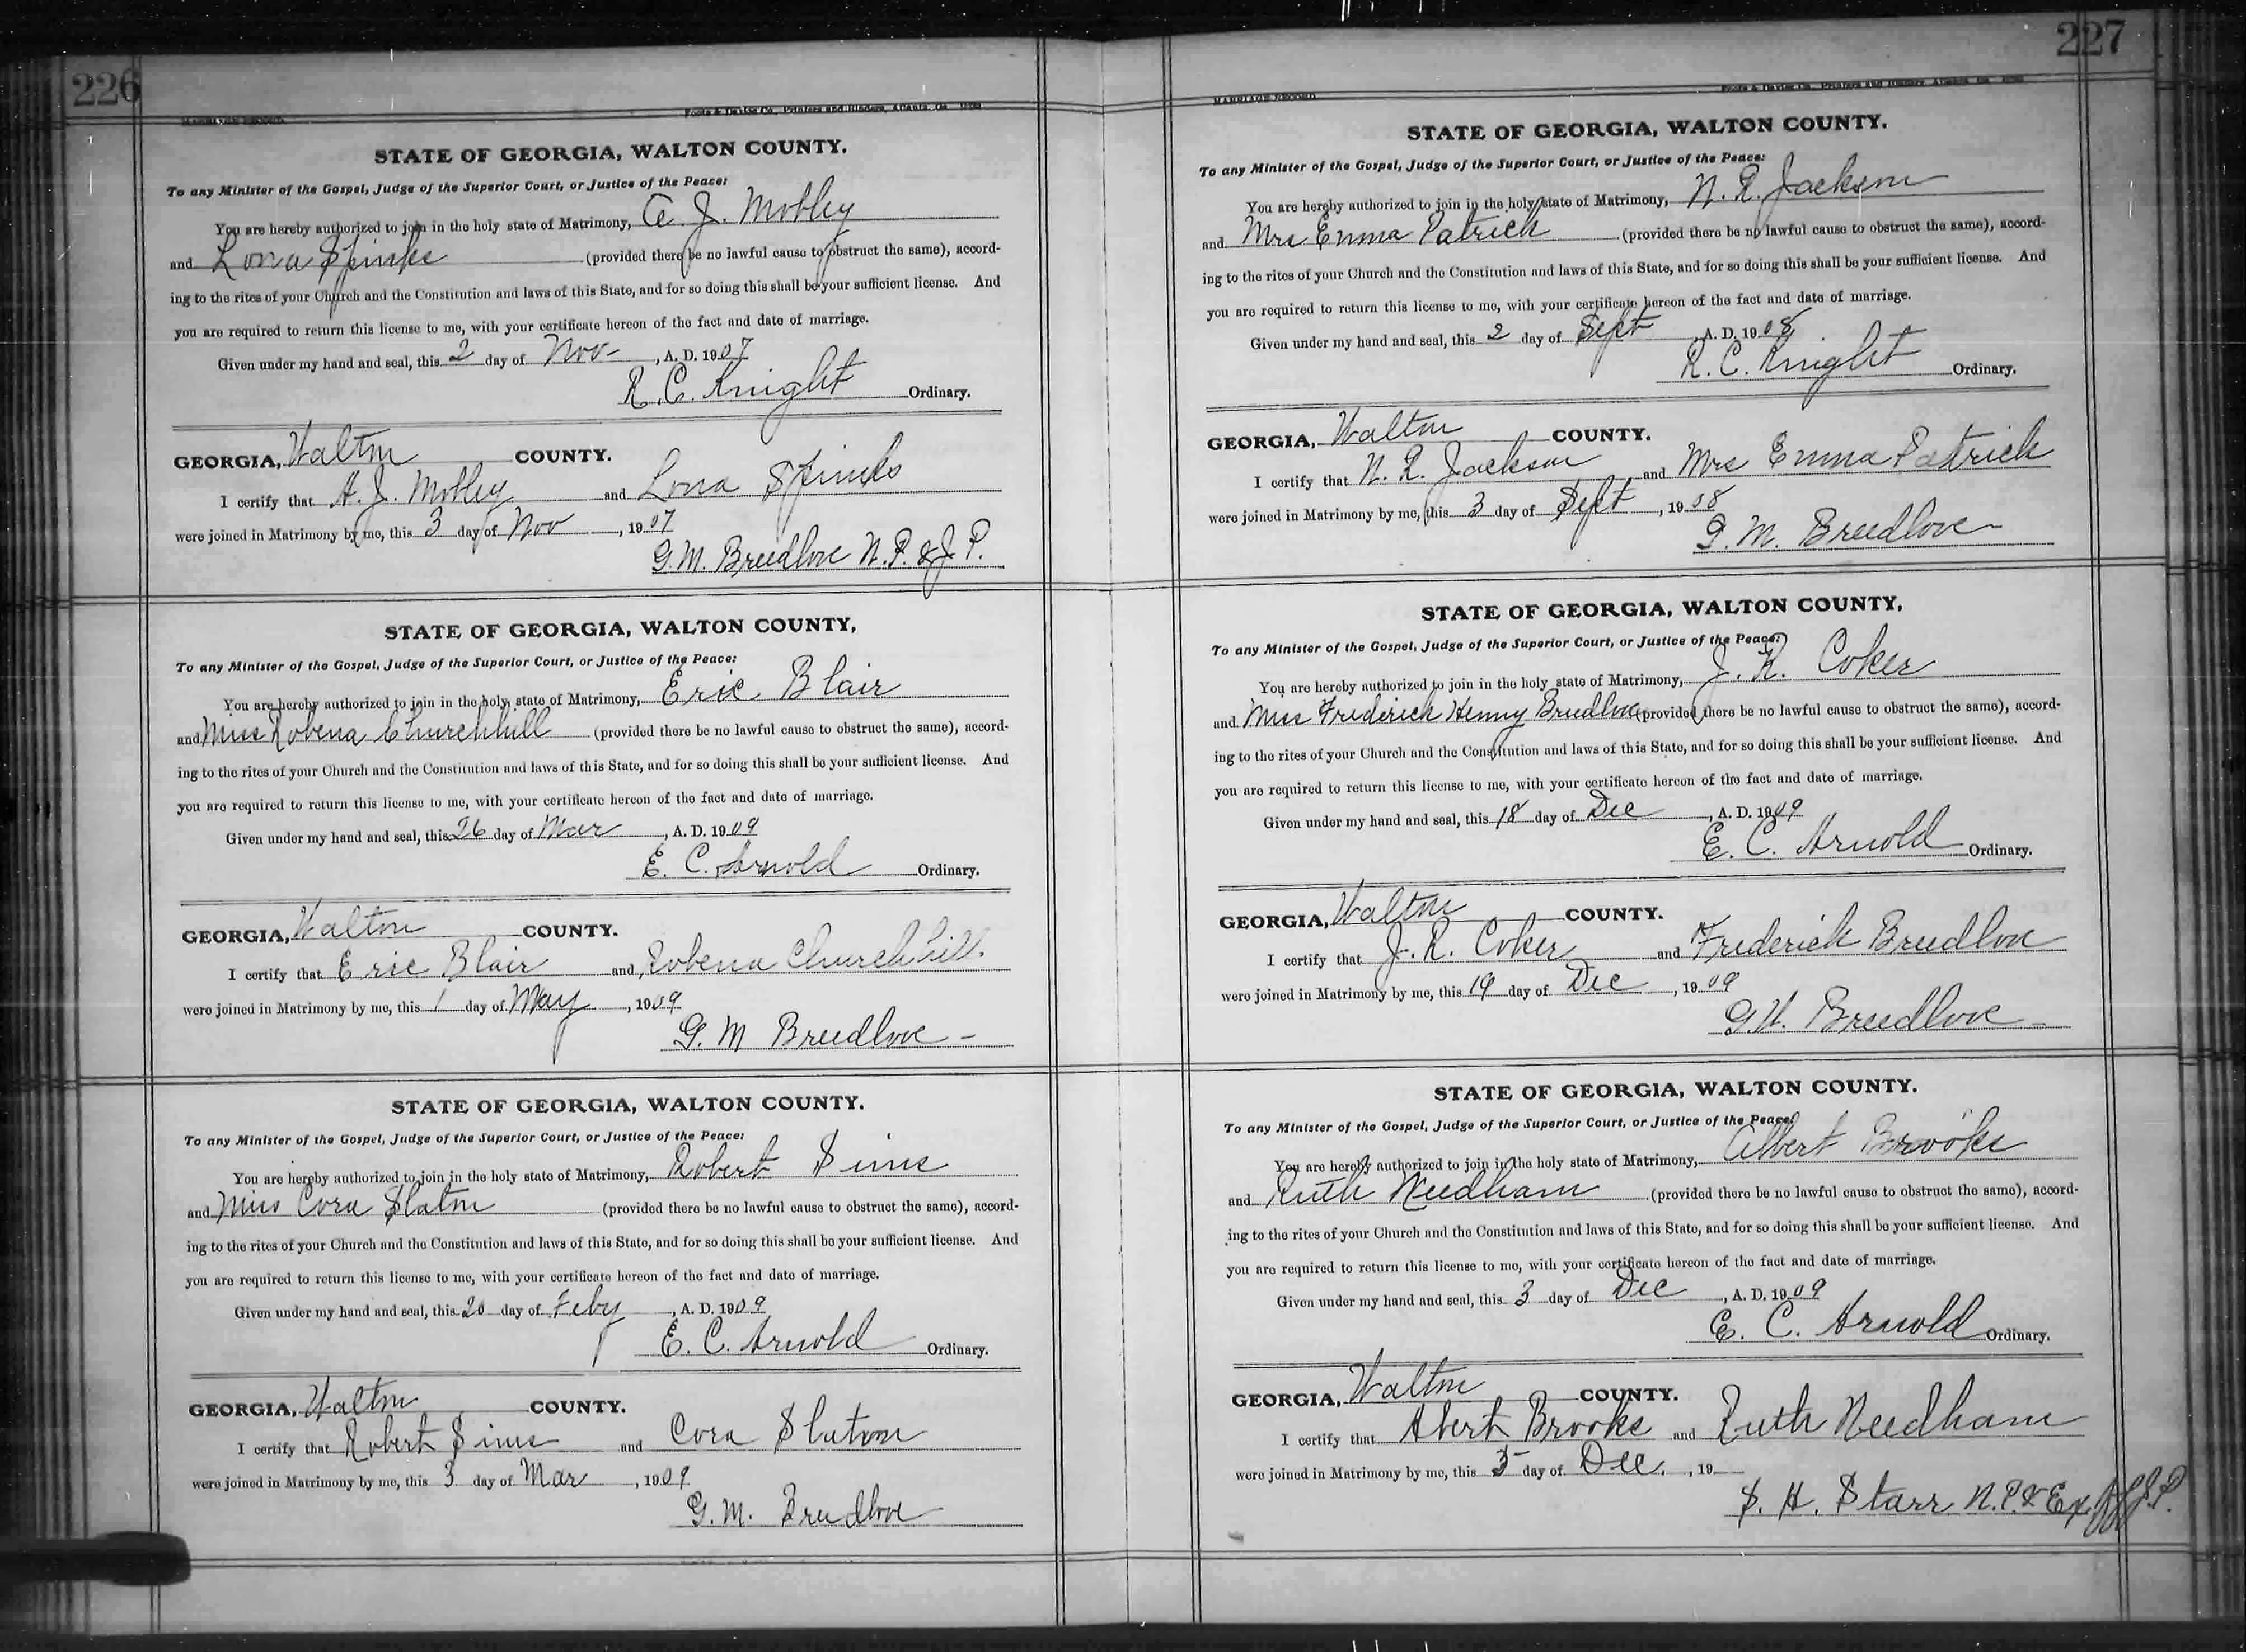 226
MARRIAGE RECORD.
Foote & Davies Co., Printers and Binders, Atlanta, Ga.
STATE OF GEORGIA, WALTON COUNTY.
To any Minister of the Gospel, Judge of the Superior Court, or Justice of the Peace:
You are hereby authorized to join in the holy state of Matrimony, A. J. Mobley
and Lona Spinks (provided there be no lawful cause to obstruct the same), accord-
ing to the rites of your Church and the Constitution and laws of this State, and for so doing this shall be your sufficient license. And
you are required to return this license to me, with your certificate hereon of the fact and date of marriage.
Given under my hand and seal, this 2 day of Nov- , A. D. 1907
R. C. Knight Ordinary.
GEORGIA, Walton COUNTY.
I certify that A. J. Mobley and Lona Spinks
were joined in Matrimony by me, this 3 day of Nov , 1907
G. M. Breedlove N. P. & J. P.
STATE OF GEORGIA, WALTON COUNTY,
To any Minister of the Gospel, Judge of the Superior Court, or Justice of the Peace:
You are hereby authorized to join in the holy state of Matrimony, Eric Blair
and Miss Robena Churchhill (provided there be no lawful cause to obstruct the same), accord-
ing to the rites of your Church and the Constitution and laws of this State, and for so doing this shall be your sufficient license. And
you are required to return this license to me, with your certificate hereon of the fact and date of marriage.
Given under my hand and seal, this 26 day of Mar , A. D. 1909
E. C. Arnold Ordinary.
GEORGIA, Walton COUNTY.
I certify that Eric Blair and Robena Churchhill.
were joined in Matrimony by me, this 1 day of May , 1909
G. M Breedlove -
STATE OF GEORGIA, WALTON COUNTY.
To any Minister of the Gospel, Judge of the Superior Court, or Justice of the Peace:
You are hereby authorized to join in the holy state of Matrimony, Robert Sims
and Miss Cora Slaton (provided there be no lawful cause to obstruct the same), accord-
ing to the rites of your Church and the Constitution and laws of this State, and for so doing this shall be your sufficient license. And
you are required to return this license to me, with your certificate hereon of the fact and date of marriage.
Given under my hand and seal, this 20 day of Feby , A. D. 1909
E. C. Arnold Ordinary.
GEORGIA, Walton COUNTY.
I certify that Robert Sims and Cora Slaton
were joined in Matrimony by me, this 3 day of Mar , 1909
G. M. Breedlove
227
MARRIAGE RECORD
Foote & Davies Co., Printers and Binders, Atlanta, Ga.
STATE OF GEORGIA, WALTON COUNTY.
To any Minister of the Gospel, Judge of the Superior Court, or Justice of the Peace:
You are hereby authorized to join in the holy state of Matrimony, N. R. Jackson
and Mrs Emma Patrick (provided there be no lawful cause to obstruct the same), accord-
ing to the rites of your Church and the Constitution and laws of this State, and for so doing this shall be your sufficient license. And
you are required to return this license to me, with your certificate hereon of the fact and date of marriage.
Given under my hand and seal, this 2 day of Sept , A. D. 1908
R. C. Knight Ordinary.
GEORGIA, Walton COUNTY.
I certify that N. R. Jackson and Mrs Emma Patrick
were joined in Matrimony by me, this 3 day of Sept , 1908
G. M. Breedlove
STATE OF GEORGIA, WALTON COUNTY,
To any Minister of the Gospel, Judge of the Superior Court, or Justice of the Peace:
You are hereby authorized to join in the holy state of Matrimony, J. R. Coker
and Miss Frederick Henny Breedlove (provided there be no lawful cause to obstruct the same), accord-
ing to the rites of your Church and the Constitution and laws of this State, and for so doing this shall be your sufficient license. And
you are required to return this license to me, with your certificate hereon of the fact and date of marriage.
Given under my hand and seal, this 18 day of Dec , A. D. 1909
E. C. Arnold Ordinary.
GEORGIA, Walton COUNTY.
I certify that J. R. Coker and Frederick Breedlove
were joined in Matrimony by me, this 19 day of Dec , 1909
Breedlove -
STATE OF GEORGIA, WALTON COUNTY.
To any Minister of the Gospel, Judge of the Superior Court, or Justice of the Peace:
You are hereby authorized to join in the holy state of Matrimony, Albert Brooks
and Ruth Needham (provided there be no lawful cause to obstruct the same), accord-
ing to the rites of your Church and the Constitution and laws of this State, and for so doing this shall be your sufficient license. And
you are required to return this license to me, with your certificate hereon of the fact and date of marriage.
Given under my hand and seal, this 3 day of Dec , A. D. 1909
E. C. Arnold Ordinary.
GEORGIA, Walton COUNTY.
I certify that Abert Brooks and Ruth Needham
were joined in Matrimony by me, this day of Dec. , 19
S. H. Starr N. P. & Ex Off J. P.